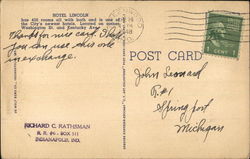 HOTEL LINCOLN
has 400 rooms all with bath and is one of
the City's newest hotels. Located on corner,
Washington St. and Kentucky Ave.
Thanks for nice card, I hope
You can use this one
in exchange.
POST CARD
John Leonard
R.#1
Springport
Michigan
RICHARD C. RATHSMAN
R. R. #6 - BOX 511
INDIANAPOLIS, IND.
1 CENT 1